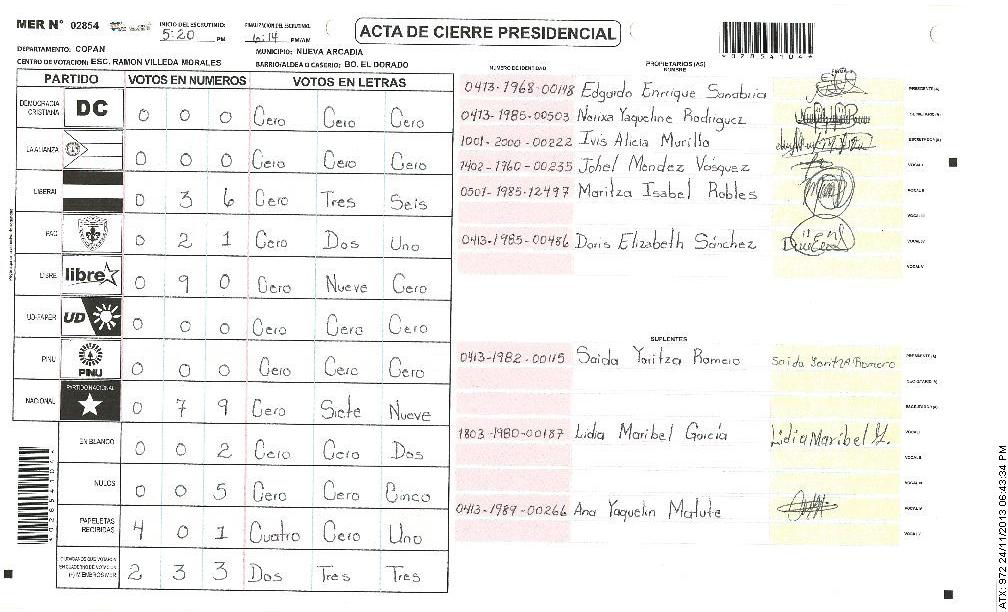 MER N° 02854 INICIO DEL ESCRUTINIO: 5:20 PM FINALIZACION DEL ESCRUTINIO: 6:14 PM/AM ACTA DE CIERRE PRESIDENCIAL
DEPARTAMENTO: COPAN MUNICIPIO: NUEVA ARCADIA
CENTRO DE VOTACION: ESC. RAMON VILLEDA MORALES BARRIO/ALDEA O CASERIO: BO. EL DORADO
PARTIDO VOTOS EN NUMEROS VOTOS EN LETRAS
DEMOCRACIA CRISTIANA DC 0 0 0 Cero Cero Cero
LA ALIANZA 0 0 0 Cero Cero Cero
LIBERAL 0 3 6 Cero Tres Seis
PAC 0 2 1 Cero Dos Uno
LIBRE libre 0 9 0 Cero Nueve Cero
UD-FAPER UD 0 0 0 Cero Cero Cero
PINU PINU 0 0 0 Cero Cero Cero
NACIONAL PARTIDO NACIONAL 0 7 9 Cero Siete Nueve
EN BLANCO 0 0 2 Cero Cero Dos
NULOS 0 0 5 Cero Cero Cinco
PAPELETAS RECIBIDAS 4 0 1 Cuatro Cero Uno
CIUDADANOS QUE VOTARON EN CUADERNO DE VOTACION (+) MIEMBROS MER 2 3 3 Dos Tres Tres
NUMERO DE IDENTIDAD PROPIETARIOS (AS) NOMBRE
0413-1968-00148 Edgardo Enrique Sanabria PRESIDENTE (A)
0413-1985-00503 Nerixa Yaqueline Rodriguez SECRETARIO (A)
1001-2000-00222 Ivis Alicia Murillo ESCRUTADOR (A)
1402-1960-00235 Johel Mendez Vásquez VOCAL I
0501-1985-12497 Maritza Isabel Robles VOCAL II
VOCAL III
0413-1985-00486 Doris Elizabeth Sánchez VOCAL IV
VOCAL V
SUPLENTES
0413-1982-00115 Saida Yaritza Romero Saida Yaritza Romero PRESIDENTE (A)
SECRETARIO (A)
ESCRUTADOR (A)
1803-1980-00187 Lidia Maribel García Lidia Maribel G. VOCAL I
VOCAL II
VOCAL III
0413-1989-00266 Ana Yaquelin Matute VOCAL IV
VOCAL V
*02854104*
*02854104*
ATX: 972 24/11/2013 06:43:34 PM